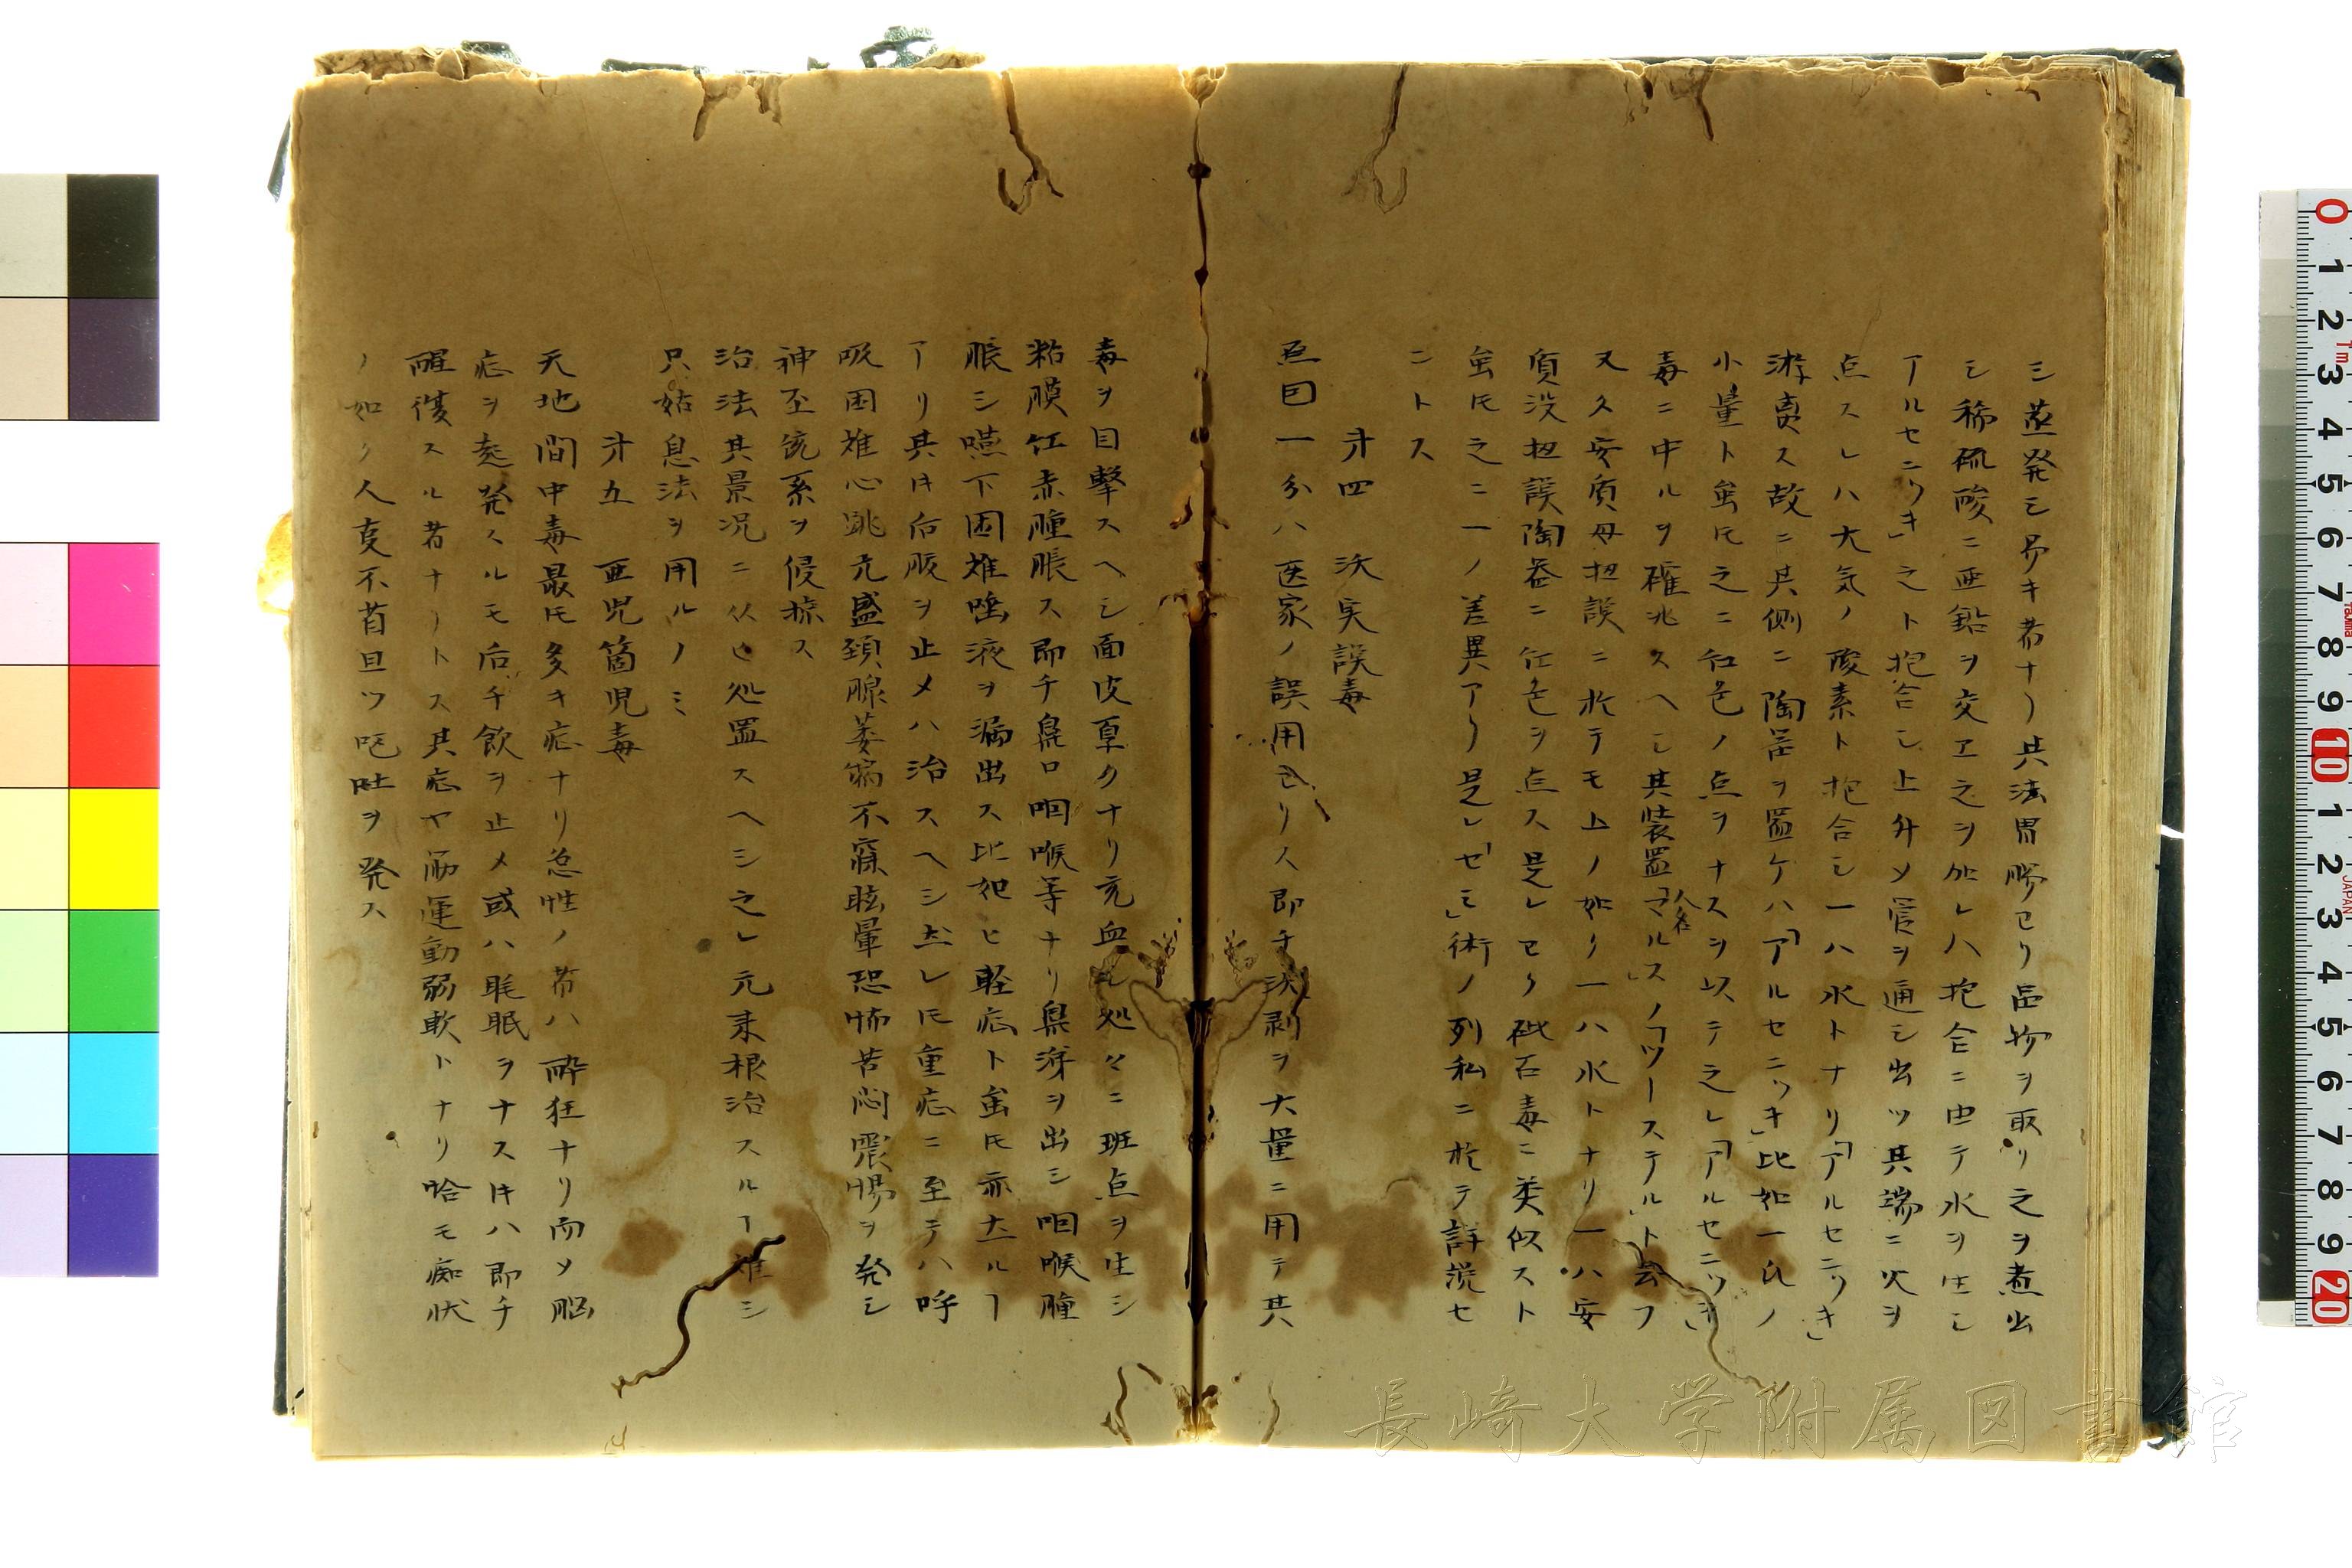 シ蒸発シ易キ者ナリ其法胃膓已リ品物ヲ取リ之ヲ煮出
シ稀硫酸ニ亜鉛ヲ交エ之ヲ処レハ抱合ニ由テ水ヲ生シ
「アルセニツキ」之ト抱合シ上舛メ管ヲ通シ出ツ其端ニ火ヲ
点スレハ大気ノ酸素ト抱合シ一ハ水トナリ「アルセニツキ」
游离ス故ニ其側ニ陶噐ヲ置ケハ「アルセニツキ」比如一氏ノ
小量ト虽𪜈之ニ紅色ノ点ヲナスヲ以テ之レ「アルセニツキ」
毒ニ中ルヲ確兆スヘシ其装置「マルス」人名ノ「ツーステル」ト云フ
又久安質母扭謨ニ於テモ上ノ如ク一ハ水トナリ一ハ安
質没扭謨陶噐ニ紅色ヲ点ス是レ已ク砒石毒ニ类似スト
虽𪜈之ニ一ノ差異アリ是レ「セミ」術ノ列私ニ於テ詳説セ
ントス
第四 沃実謨毒
此目一分ハ医家ノ誤用已リス即チ沃剥ヲ大量ニ用テ其
毒ヲ目撃スヘシ面皮厚クナリ充血シ処々ニ班点ヲ生シ
粘膜紅赤腫脹ス即チ鼻口咽喉等ナリ鼻涕ヲ出シ咽喉腫
脹シ嚥下困难唾液ヲ漏出ス比如ヒ軽症ト虽𪜈亦大ルヿ
アリ其時后服ヲ止メハ治スヘシ左レ𪜈重症ニ至テハ呼
吸困难心跳亢盛頚腺萎縮不寐眩暈恐怖苦悶震惕ヲ発シ
神至統系ヲ侵掠ス
治法其景况ニ从ヒ処置スヘシ之レ元来根治スルヿ难シ
只姑息法ヲ用ルノミ
第五 亜児箇児毒
天地間中毒最𪜈多キ症ナリ急性ノ者ハ酔狂ナリ而メ脳
症ヲ起発スルモ后チ飲ヲ止メ或ハ眊眠ヲナス時ハ即チ
醒復スル者ナリトス其症ヤ筋運動弱軟トナリ恰モ痴状
ノ如ク人叓不省且ツ呕吐ヲ発ス
長崎大学附属図書館